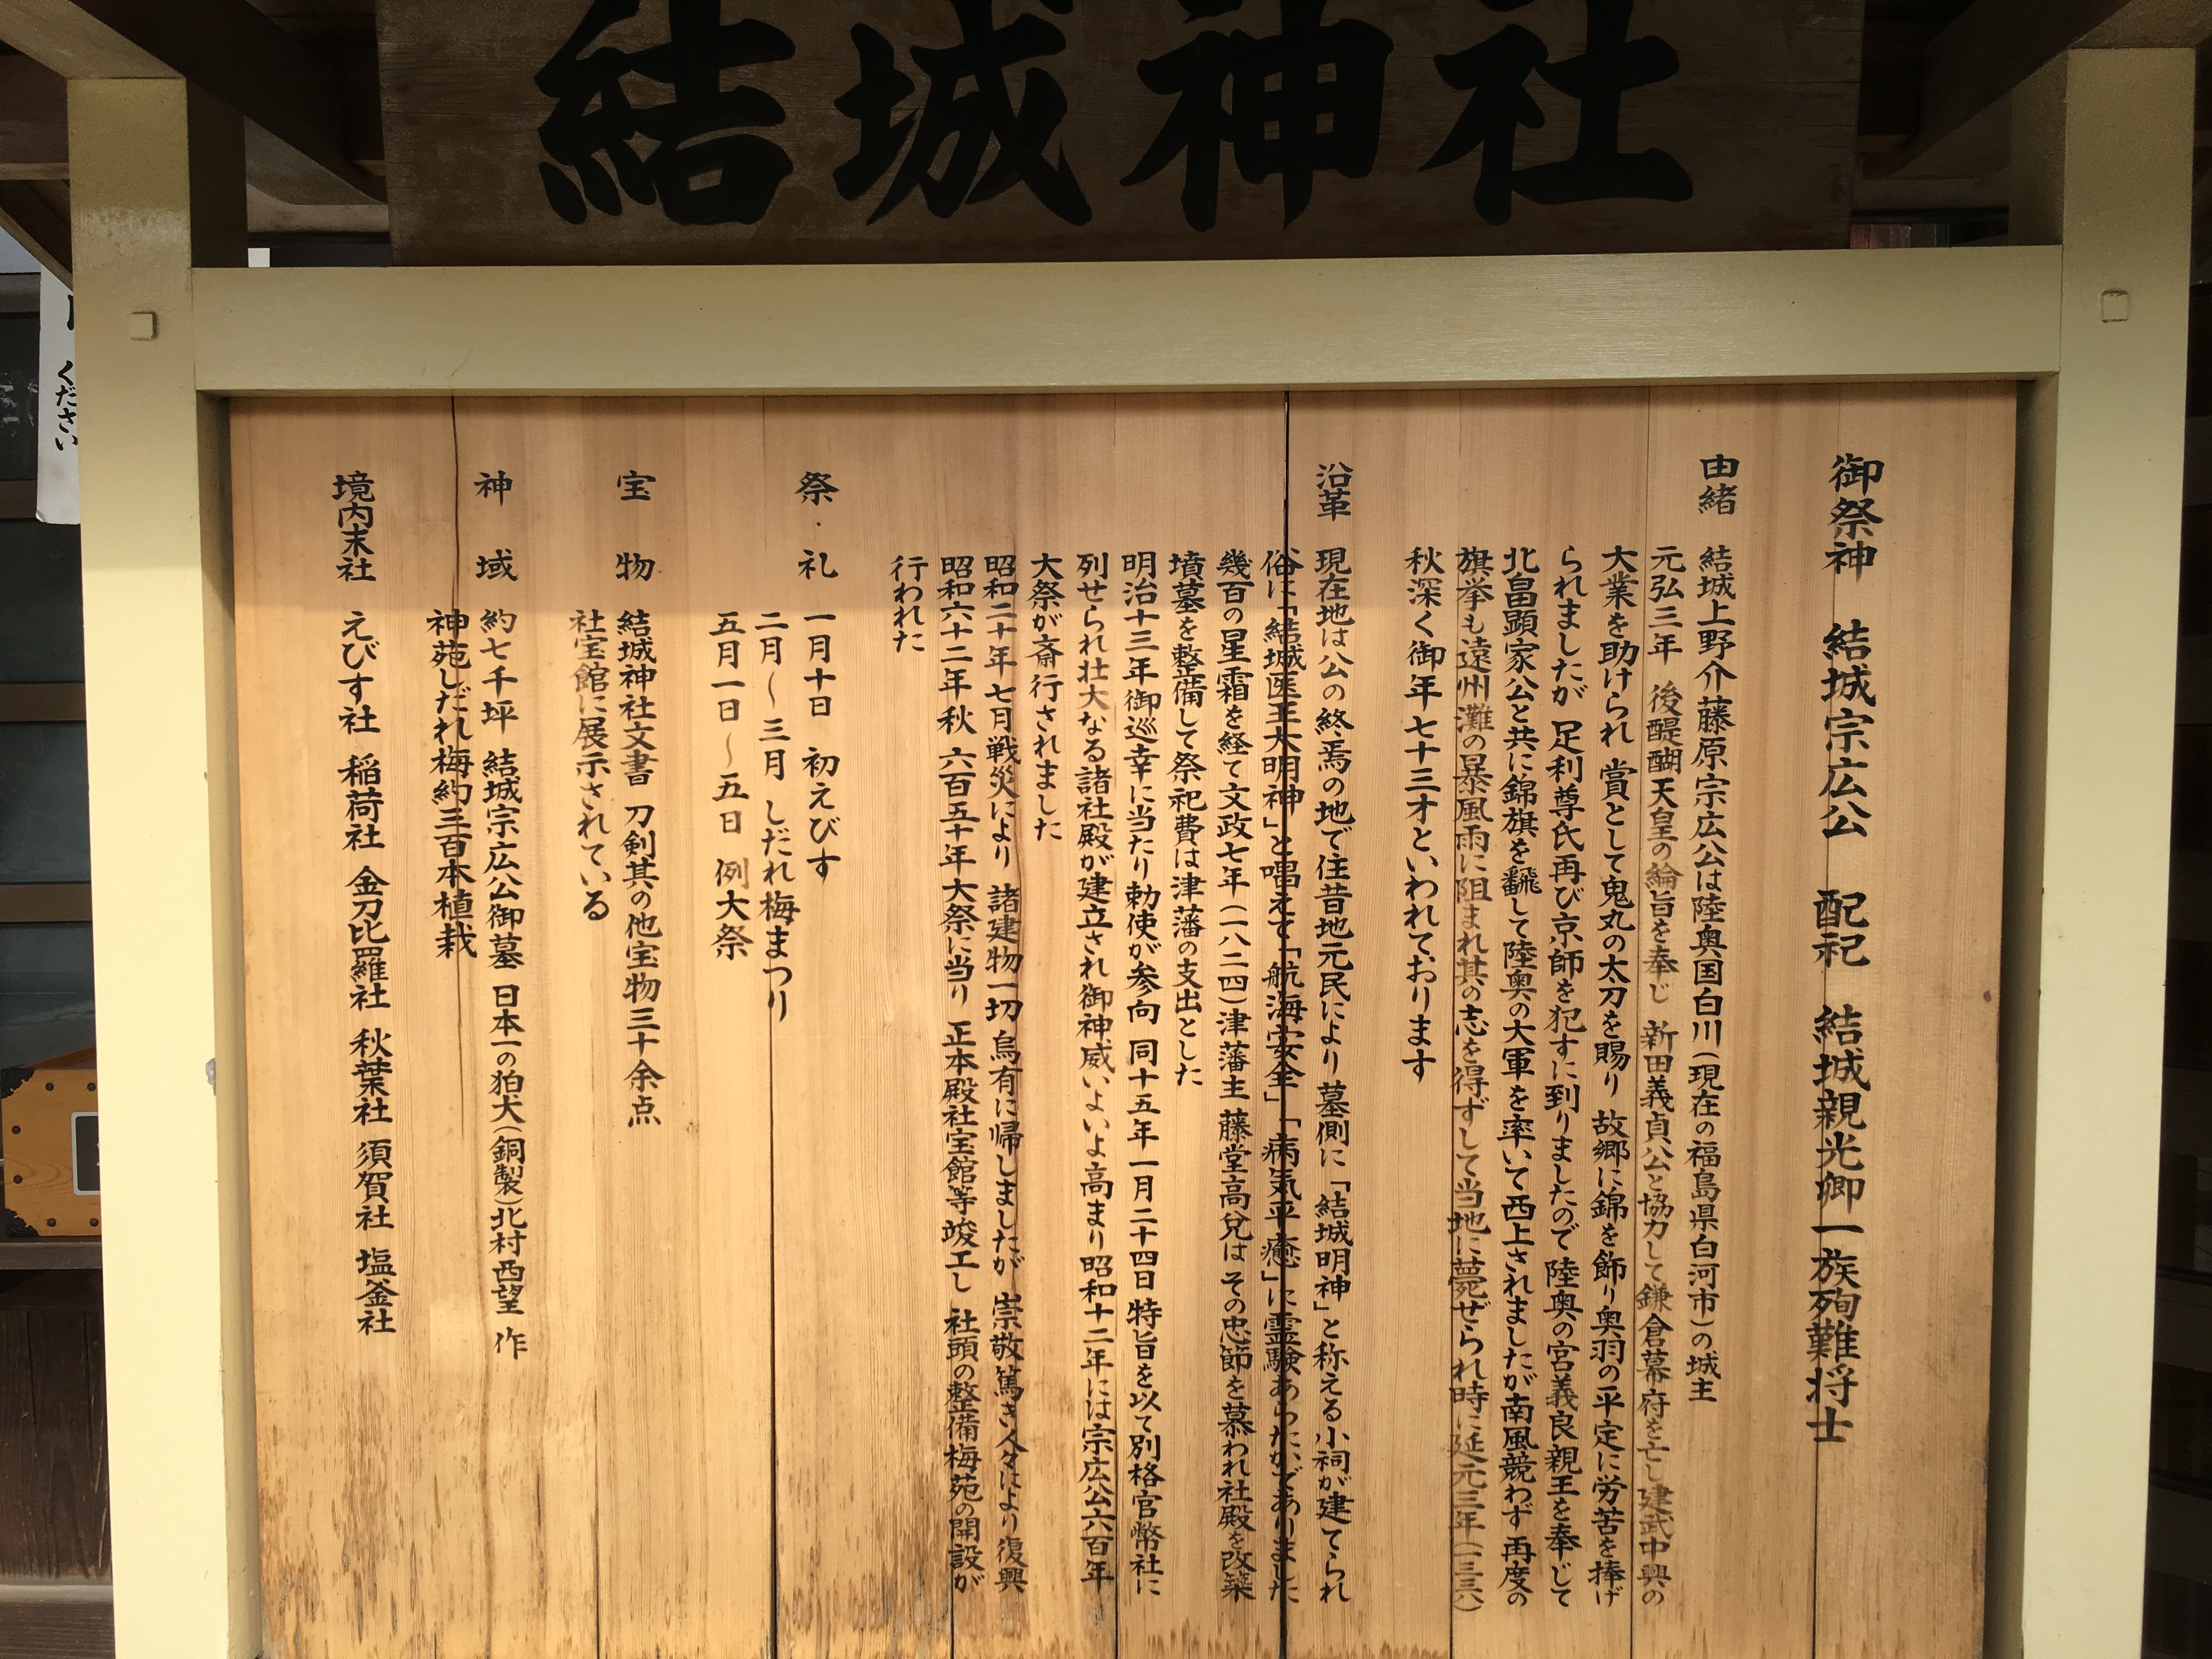 結城神社
御祭神　結城宗広公　配祀　結城親光卿一族殉難将士
由緒　結城上野介藤原宗広公は陸奥国白川（現在の福島県白河市）の城主
元弘三年　後醍醐天皇の綸旨を奉じ　新田義貞公と協力して鎌倉幕府を亡し建武中興の
大業を助けられ　賞として鬼丸の太刀を賜り　故郷に錦を飾り奥羽の平定に労苦を捧げ
られましたが　足利尊氏再び京師を犯すに到りましたので　陸奥の宮義良親王を奉じて
北畠顕家公と共に錦旗を飜して陸奥の大軍を率いて西上されましたが南風競わず　再度の
旗挙も遠州灘の暴風雨に阻まれ其の志を得ずして当地に薨ぜられ時に延元三年（一三三八）
秋深く御年七十三才といわれております
沿革　現在地は公の終焉の地で往昔地元民により　墓側に「結城明神」と称える小祠が建てられ
俗に「結城医王大明神」と唱えて「航海安全」「病気平癒」に霊験あらたかでありました
幾百の星霜を経て文政七年（一八二四）津藩主　藤堂高兌は　その忠節を慕われ社殿を改築
墳墓を整備して祭祀費は津藩の支出とした
明治十三年御巡幸に当たり勅使が参向　同十五年一月二十四日　特旨を以て別格官幣社に
列せられ壮大なる諸社殿が建立され御神威いよいよ高まり昭和十二年には宗広公六百年
大祭が斎行されました
昭和二十年七月戦災により　諸建物一切　烏有に帰しましたが　崇敬篤き人々により　復興
昭和六十二年秋　六百五十年大祭に当り　正本殿社宝館等竣工し　社頭の整備梅苑の開設が
行われた
祭・礼　一月十日　初えびす
二月〜三月　しだれ梅まつり
五月一日〜五日　例大祭
宝物　結城神社文書　刀剣其の他宝物三十余点
社宝館に展示されている
神域　約七千坪　結城宗広公御墓　日本一の狛犬（銅製）北村西望　作
神苑しだれ梅約三百本植栽
境内末社　えびす社　稲荷社　金刀比羅社　秋葉社　須賀社　塩釜社
ください